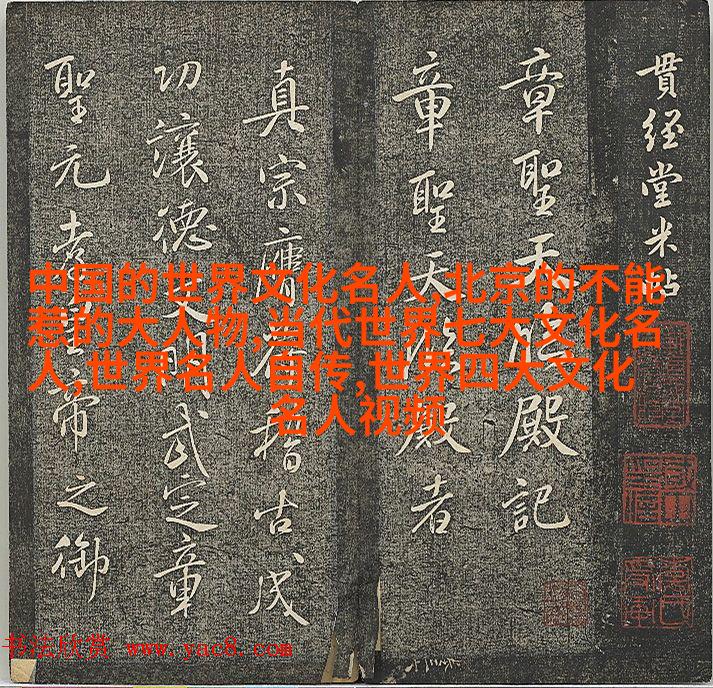 貫經堂米帖
章聖天臨殿記
章聖天臨殿者
真宗膺稽古成
功讓德文明武定章
聖元孝皇帝之御
中国的世界文化名人,北京的不能
惹的大人物,当代世界七大文化名
人,世界名人自传,世界四大文化
名人视频
书法欣赏 www.yac8.com